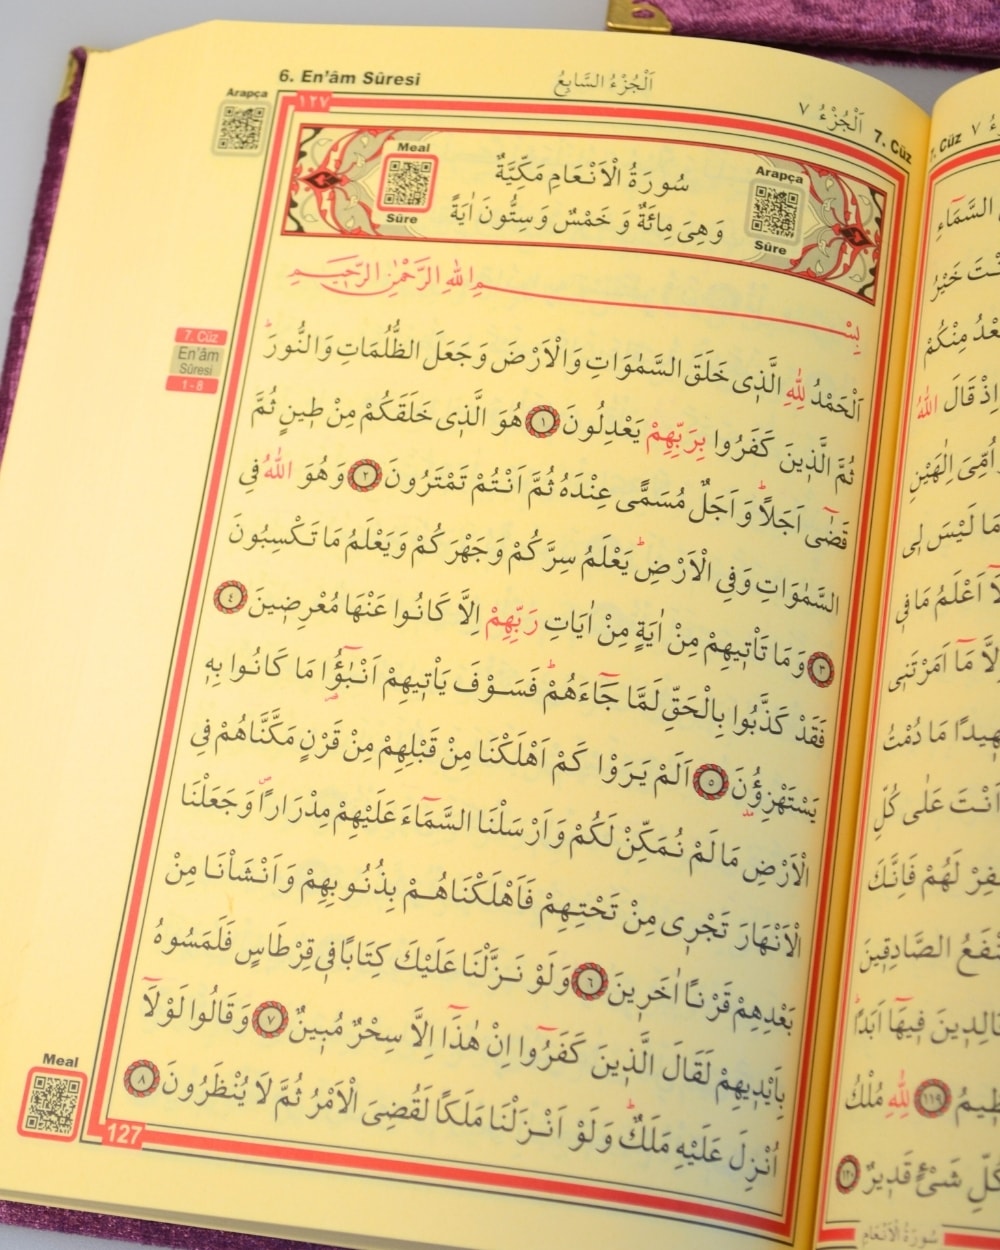 6. En'âm Sûresi
اَلْجُزْءُ السَّابِعُ
اَلْجُزْءُ ٧
7. Cüz
Arapça
١٢٧
Meal
Sûre
سُورَةُ الْاَنْعَامِ مَكِّيَّةٌ
وَهِيَ مِائَةٌ وَخَمْسٌ وَسِتُّونَ اٰيَةً
Arapça
Sûre
بِسْمِ اللهِ الرَّحْمٰنِ الرَّحِيمِ
7. Cüz
En'âm
Sûresi
1 - 8
اَلْحَمْدُ لِلّٰهِ الَّذ۪ى خَلَقَ السَّمٰوَاتِ وَالْاَرْضَ وَجَعَلَ الظُّلُمَاتِ وَالنُّورَۜ
ثُمَّ الَّذ۪ينَ كَفَرُوا بِرَبِّهِمْ يَعْدِلُونَ ﴿١﴾ هُوَ الَّذ۪ى خَلَقَكُمْ مِنْ ط۪ينٍ ثُمَّ
قَضٰٓى اَجَلًاۜ وَاَجَلٌ مُسَمًّى عِنْدَهُ ثُمَّ اَنْتُمْ تَمْتَرُونَ ﴿٢﴾ وَهُوَ اللهُ فِى
السَّمٰوَاتِ وَفِى الْاَرْضِۜ يَعْلَمُ سِرَّكُمْ وَجَهْرَكُمْ وَيَعْلَمُ مَا تَكْسِبُونَ
﴿٣﴾ وَمَا تَأْت۪يهِمْ مِنْ اٰيَةٍ مِنْ اٰيَاتِ رَبِّهِمْ اِلَّا كَانُوا عَنْهَا مُعْرِض۪ينَ ﴿٤﴾
فَقَدْ كَذَّبُوا بِالْحَقِّ لَمَّا جَٓاءَهُمْۜ فَسَوْفَ يَأْت۪يهِمْ اَنْبٰٓؤُ۬ا مَا كَانُوا بِه۪
يَسْتَهْزِؤُ۫نَ ﴿٥﴾ اَلَمْ يَرَوْا كَمْ اَهْلَكْنَا مِنْ قَبْلِهِمْ مِنْ قَرْنٍ مَكَّنَّاهُمْ فِى
الْاَرْضِ مَا لَمْ نُمَكِّنْ لَكُمْ وَاَرْسَلْنَا السَّمَٓاءَ عَلَيْهِمْ مِدْرَارًاۖ وَجَعَلْنَا
الْاَنْهَارَ تَجْر۪ى مِنْ تَحْتِهِمْ فَاَهْلَكْنَاهُمْ بِذُنُوبِهِمْ وَاَنْشَأْنَا مِنْ
بَعْدِهِمْ قَرْنًا اٰخَر۪ينَ ﴿٦﴾ وَلَوْ نَزَّلْنَا عَلَيْكَ كِتَابًا ف۪ى قِرْطَاسٍ فَلَمَسُوهُ
بِاَيْد۪يهِمْ لَقَالَ الَّذ۪ينَ كَفَرُٓوا اِنْ هٰذَٓا اِلَّا سِحْرٌ مُب۪ينٌ ﴿٧﴾ وَقَالُوا لَوْلَٓا
اُنْزِلَ عَلَيْهِ مَلَكٌۜ وَلَوْ اَنْزَلْنَا مَلَكًا لَقُضِىَ الْاَمْرُ ثُمَّ لَا يُنْظَرُونَ ﴿٨﴾
Meal
127
7. Cüz
السَّمَٓاءِ
خَيْرُ
مِنْكُمْ
اِذْ قَالَ اللهُ
اُمِّىَ اِلٰهَيْنِ
مَا لَيْسَ ل۪ى
اَعْلَمُ مَا ف۪ى
مَٓا اَمَرْتَن۪ى
مَا دُمْتُ
اَنْتَ عَلٰى كُلِّ
لَهُمْ فَاِنَّكَ
الصَّادِق۪ينَ
ف۪يهَٓا اَبَدًاۜ
﴿١١٩﴾ لِلّٰهِ مُلْكُ
شَىْءٍ قَد۪يرٌ ﴿١٢٠﴾
سُورَةُ الْاَنْعَامِ